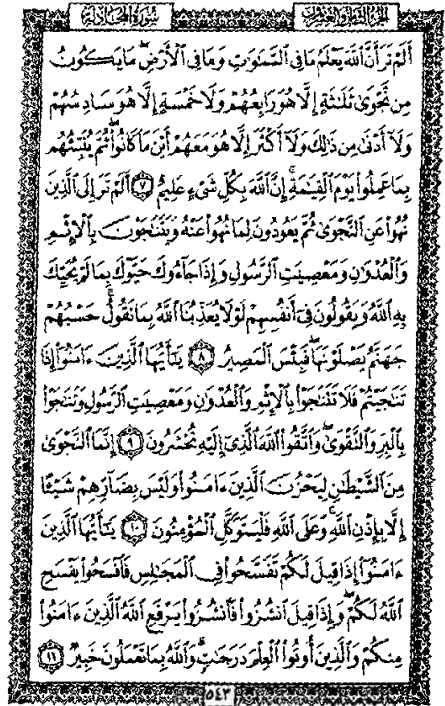 سورة المجادلة
الجزء الثامن والعشرون
أَلَمْ تَرَ أَنَّ ٱللَّهَ يَعْلَمُ مَا فِى ٱلسَّمَٰوَٰتِ وَمَا فِى ٱلْأَرْضِ ۖ مَا يَكُونُ
مِن نَّجْوَىٰ ثَلَٰثَةٍ إِلَّا هُوَ رَابِعُهُمْ وَلَا خَمْسَةٍ إِلَّا هُوَ سَادِسُهُمْ
وَلَآ أَدْنَىٰ مِن ذَٰلِكَ وَلَآ أَكْثَرَ إِلَّا هُوَ مَعَهُمْ أَيْنَ مَا كَانُوا۟ ۖ ثُمَّ يُنَبِّئُهُم
بِمَا عَمِلُوا۟ يَوْمَ ٱلْقِيَٰمَةِ ۚ إِنَّ ٱللَّهَ بِكُلِّ شَىْءٍ عَلِيمٌ ٧ أَلَمْ تَرَ إِلَى ٱلَّذِينَ
نُهُوا۟ عَنِ ٱلنَّجْوَىٰ ثُمَّ يَعُودُونَ لِمَا نُهُوا۟ عَنْهُ وَيَتَنَٰجَوْنَ بِٱلْإِثْمِ
وَٱلْعُدْوَٰنِ وَمَعْصِيَتِ ٱلرَّسُولِ وَإِذَا جَآءُوكَ حَيَّوْكَ بِمَا لَمْ يُحَيِّكَ
بِهِ ٱللَّهُ وَيَقُولُونَ فِىٓ أَنفُسِهِمْ لَوْلَا يُعَذِّبُنَا ٱللَّهُ بِمَا نَقُولُ ۚ حَسْبُهُمْ
جَهَنَّمُ يَصْلَوْنَهَا ۖ فَبِئْسَ ٱلْمَصِيرُ ٨ يَٰٓأَيُّهَا ٱلَّذِينَ ءَامَنُوٓا۟ إِذَا
تَنَٰجَيْتُمْ فَلَا تَتَنَٰجَوْا۟ بِٱلْإِثْمِ وَٱلْعُدْوَٰنِ وَمَعْصِيَتِ ٱلرَّسُولِ وَتَنَٰجَوْا۟
بِٱلْبِرِّ وَٱلتَّقْوَىٰ ۖ وَٱتَّقُوا۟ ٱللَّهَ ٱلَّذِىٓ إِلَيْهِ تُحْشَرُونَ ٩ إِنَّمَا ٱلنَّجْوَىٰ
مِنَ ٱلشَّيْطَٰنِ لِيَحْزُنَ ٱلَّذِينَ ءَامَنُوا۟ وَلَيْسَ بِضَآرِّهِمْ شَيْـًٔا
إِلَّا بِإِذْنِ ٱللَّهِ ۚ وَعَلَى ٱللَّهِ فَلْيَتَوَكَّلِ ٱلْمُؤْمِنُونَ ١٠ يَٰٓأَيُّهَا ٱلَّذِينَ
ءَامَنُوٓا۟ إِذَا قِيلَ لَكُمْ تَفَسَّحُوا۟ فِى ٱلْمَجَٰلِسِ فَٱفْسَحُوا۟ يَفْسَحِ
ٱللَّهُ لَكُمْ ۖ وَإِذَا قِيلَ ٱنشُزُوا۟ فَٱنشُزُوا۟ يَرْفَعِ ٱللَّهُ ٱلَّذِينَ ءَامَنُوا۟
مِنكُمْ وَٱلَّذِينَ أُوتُوا۟ ٱلْعِلْمَ دَرَجَٰتٍ ۚ وَٱللَّهُ بِمَا تَعْمَلُونَ خَبِيرٌ ١١
٥٤٣